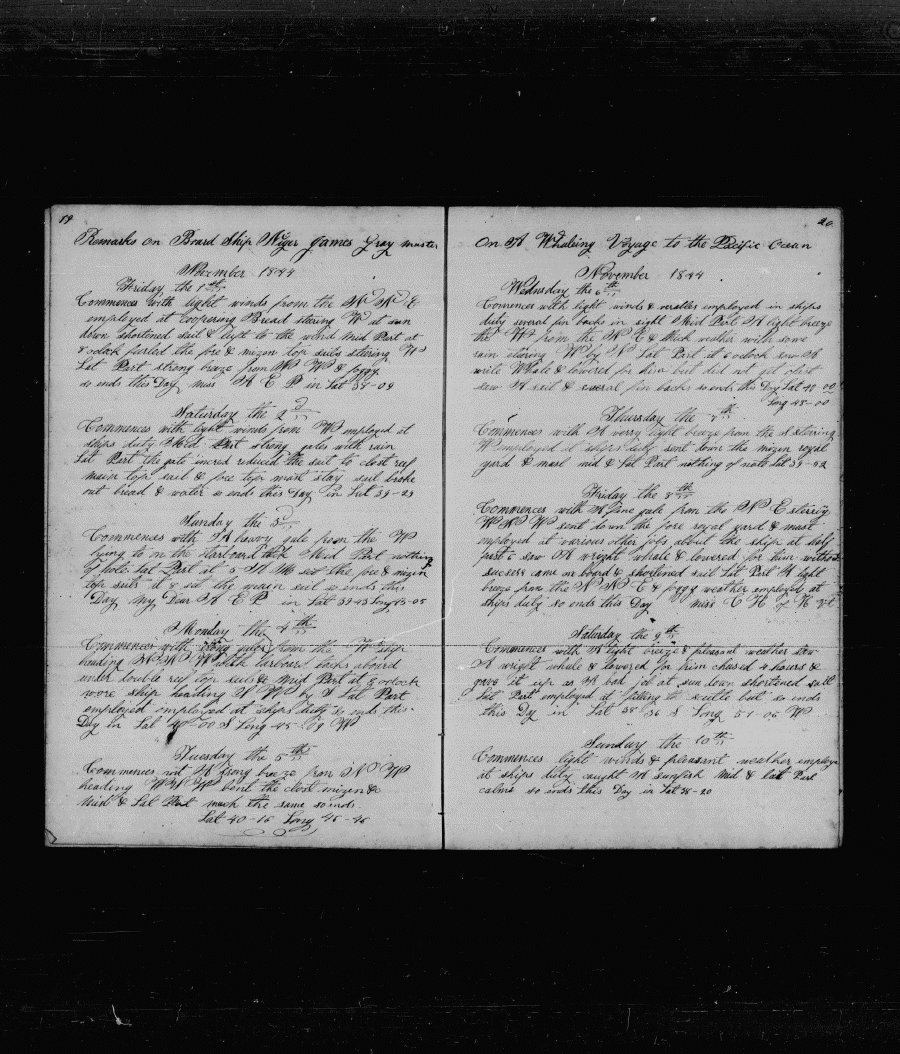 19
Remarks on Board Ship Niger James Gray master
November 1844
Friday the 1st
Commences with light winds from the N N E
employed at Coopering Bread stering W at sun
down shortened sail & lept to the wind Mid Part at
8 oclock furled the fore & mizon top sails stering W
Lat Part strong breze from N W W & foggy
so ends this Day miss A E P in Lat 38-09
Saturday the 2d
Commences with light winds from W mployed it
ships duty Mid Part strong gale with rain
Lat Part the gale incred reduced the sail to clost reef
main top sail & fore top mast stay sail broke
out bread & water so ends this Day in Lat 39-29
Sunday the 3
Commences with A havvy gale from the W
lying to on the starboard tack Mid Part nothing
of note Lat Part at 5 A M set the fore & mizin
top sails it & set the main sail so ends this
Day my Dear A E P in Lat 39-43 Long 43-05
Monday the 4th
Commences with strong gales from the W ship
heading N N W with larboard tacks aboard
under double reef top sails & Mid Part at 8 oclock
wore ship heading S W by S Lat Part
employed employed at ships duty so ends this
Day in Lat 40-00 S Long 45-09 W
Tuesday the 5th
Commences wit A strong breze from N W
heading W S W bent the clost mizen &c
Mid & Lat Part much the same so ends
Lat 40-15 Long 46-46
20
On A Whaling Voyage to the Pacific Ocean
November 1844
Wednesday the 6th
Commences with light winds & veralles employed in ships
duty several fin backs in sight Mid Part A light breze
the W from the N E & thick wether with some
rain stering W by N Lat Part at 6 oclock saw A
write Whale & lowered for him but did not get clost
saw A sail & several fin backs so ends this Day Lat 40-00
Long 48-00
Thursday the 7th
Commences with A verry light breze from the S sterring
W employed it ships duty sent down the mizen royal
yard & mast mid & Lat Part nothing of note Lat 39-52
Friday the 8th
Commences with A fine gale from the N E sterrig
W N W sent down the fore royal yard & mast
employed at various other jobs about the ship at half
past 6 saw A wright whale & lowered for him without
success came on board & shortened sail Lat Part A light
breze from the N N E & foggy weather employed at
ships duty so ends this Day miss C H of
Saturday the 9th
Commences with A light breze & pleasant weather saw
A wright whale & lowered for him chased 4 hours &
gave it up as A bad job at sun down shortened sail
Lat Part employed at filling the scuttle but so ends
this Day in Lat 38-36 S Long 51-05 W
Sunday the 10th
Commences light winds & pleasant weather employe
at ships duty caught A sunfish Mid & last Part
calms so ends this Day in Lat 38-20